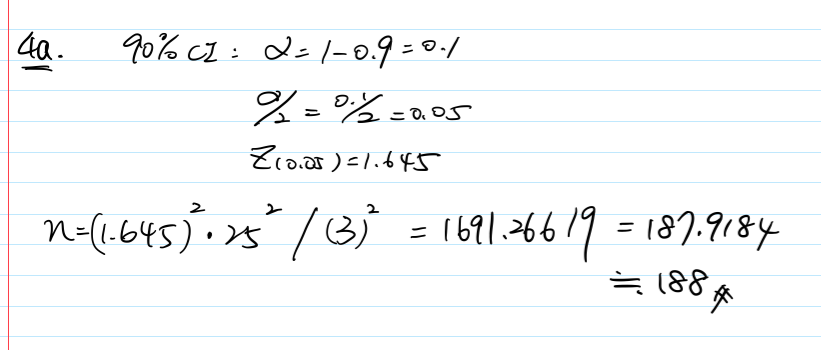 4a. 90% CI : α = 1-0.9 = 0.1
α/2 = 0.1/2 = 0.05
Z(0.05) = 1.645
n = (1.645)² · 25² / (3)² = 1691.266/9 = 187.9184
≒ 188 #